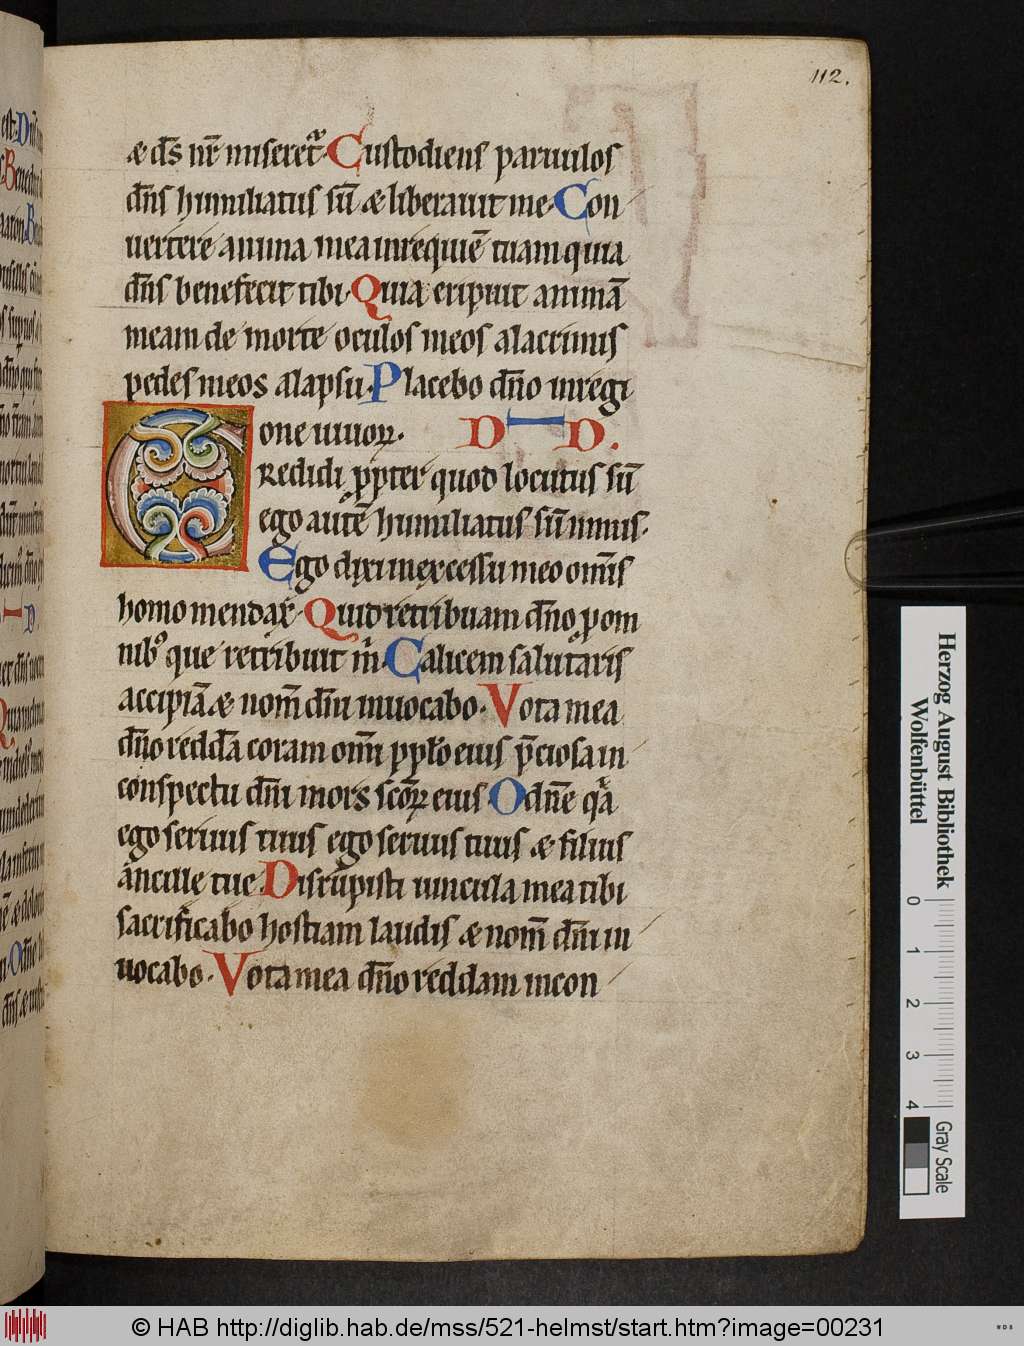 112.
& dn̄s nr̄ miseret᷑. Custodiens paruulos
dn̄s humiliatus sū & liberauit me. Con
uertere anima mea in requiē tuam quia
dn̄s benefecit tibi. Quia eripuit animā
meam de morte oculos meos a lacrimis
pedes meos a lapsu. Placebo dn̄o in regi
one uiuoꝝ. D D.
Credidi ꝓpter quod locutus sū
ego autē humiliatus sū nimis.
Ego dixi in excessu meo omīs
homo mendax. Quid retribuam dn̄o p om
nibꝰ que retribuit m̄. Calicem salutaris
accipiā & nom̄ dn̄i inuocabo. Vota mea
dn̄o reddā coram omī ppło eius p̄ciosa in
conspectu dn̄i mors scōꝝ eius. O dn̄e qͣa
ego seruus tuus ego seruus tuus & filius
ancille tue. Disrupisti uincula mea tibi
sacrificabo hostiam laudis & nom̄ dn̄i in
uocabo. Vota mea dn̄o reddam in con
Herzog August Bibliothek
Wolfenbüttel
0 1 2 3 4
Gray Scale
© HAB http://diglib.hab.de/mss/521-helmst/start.htm?image=00231